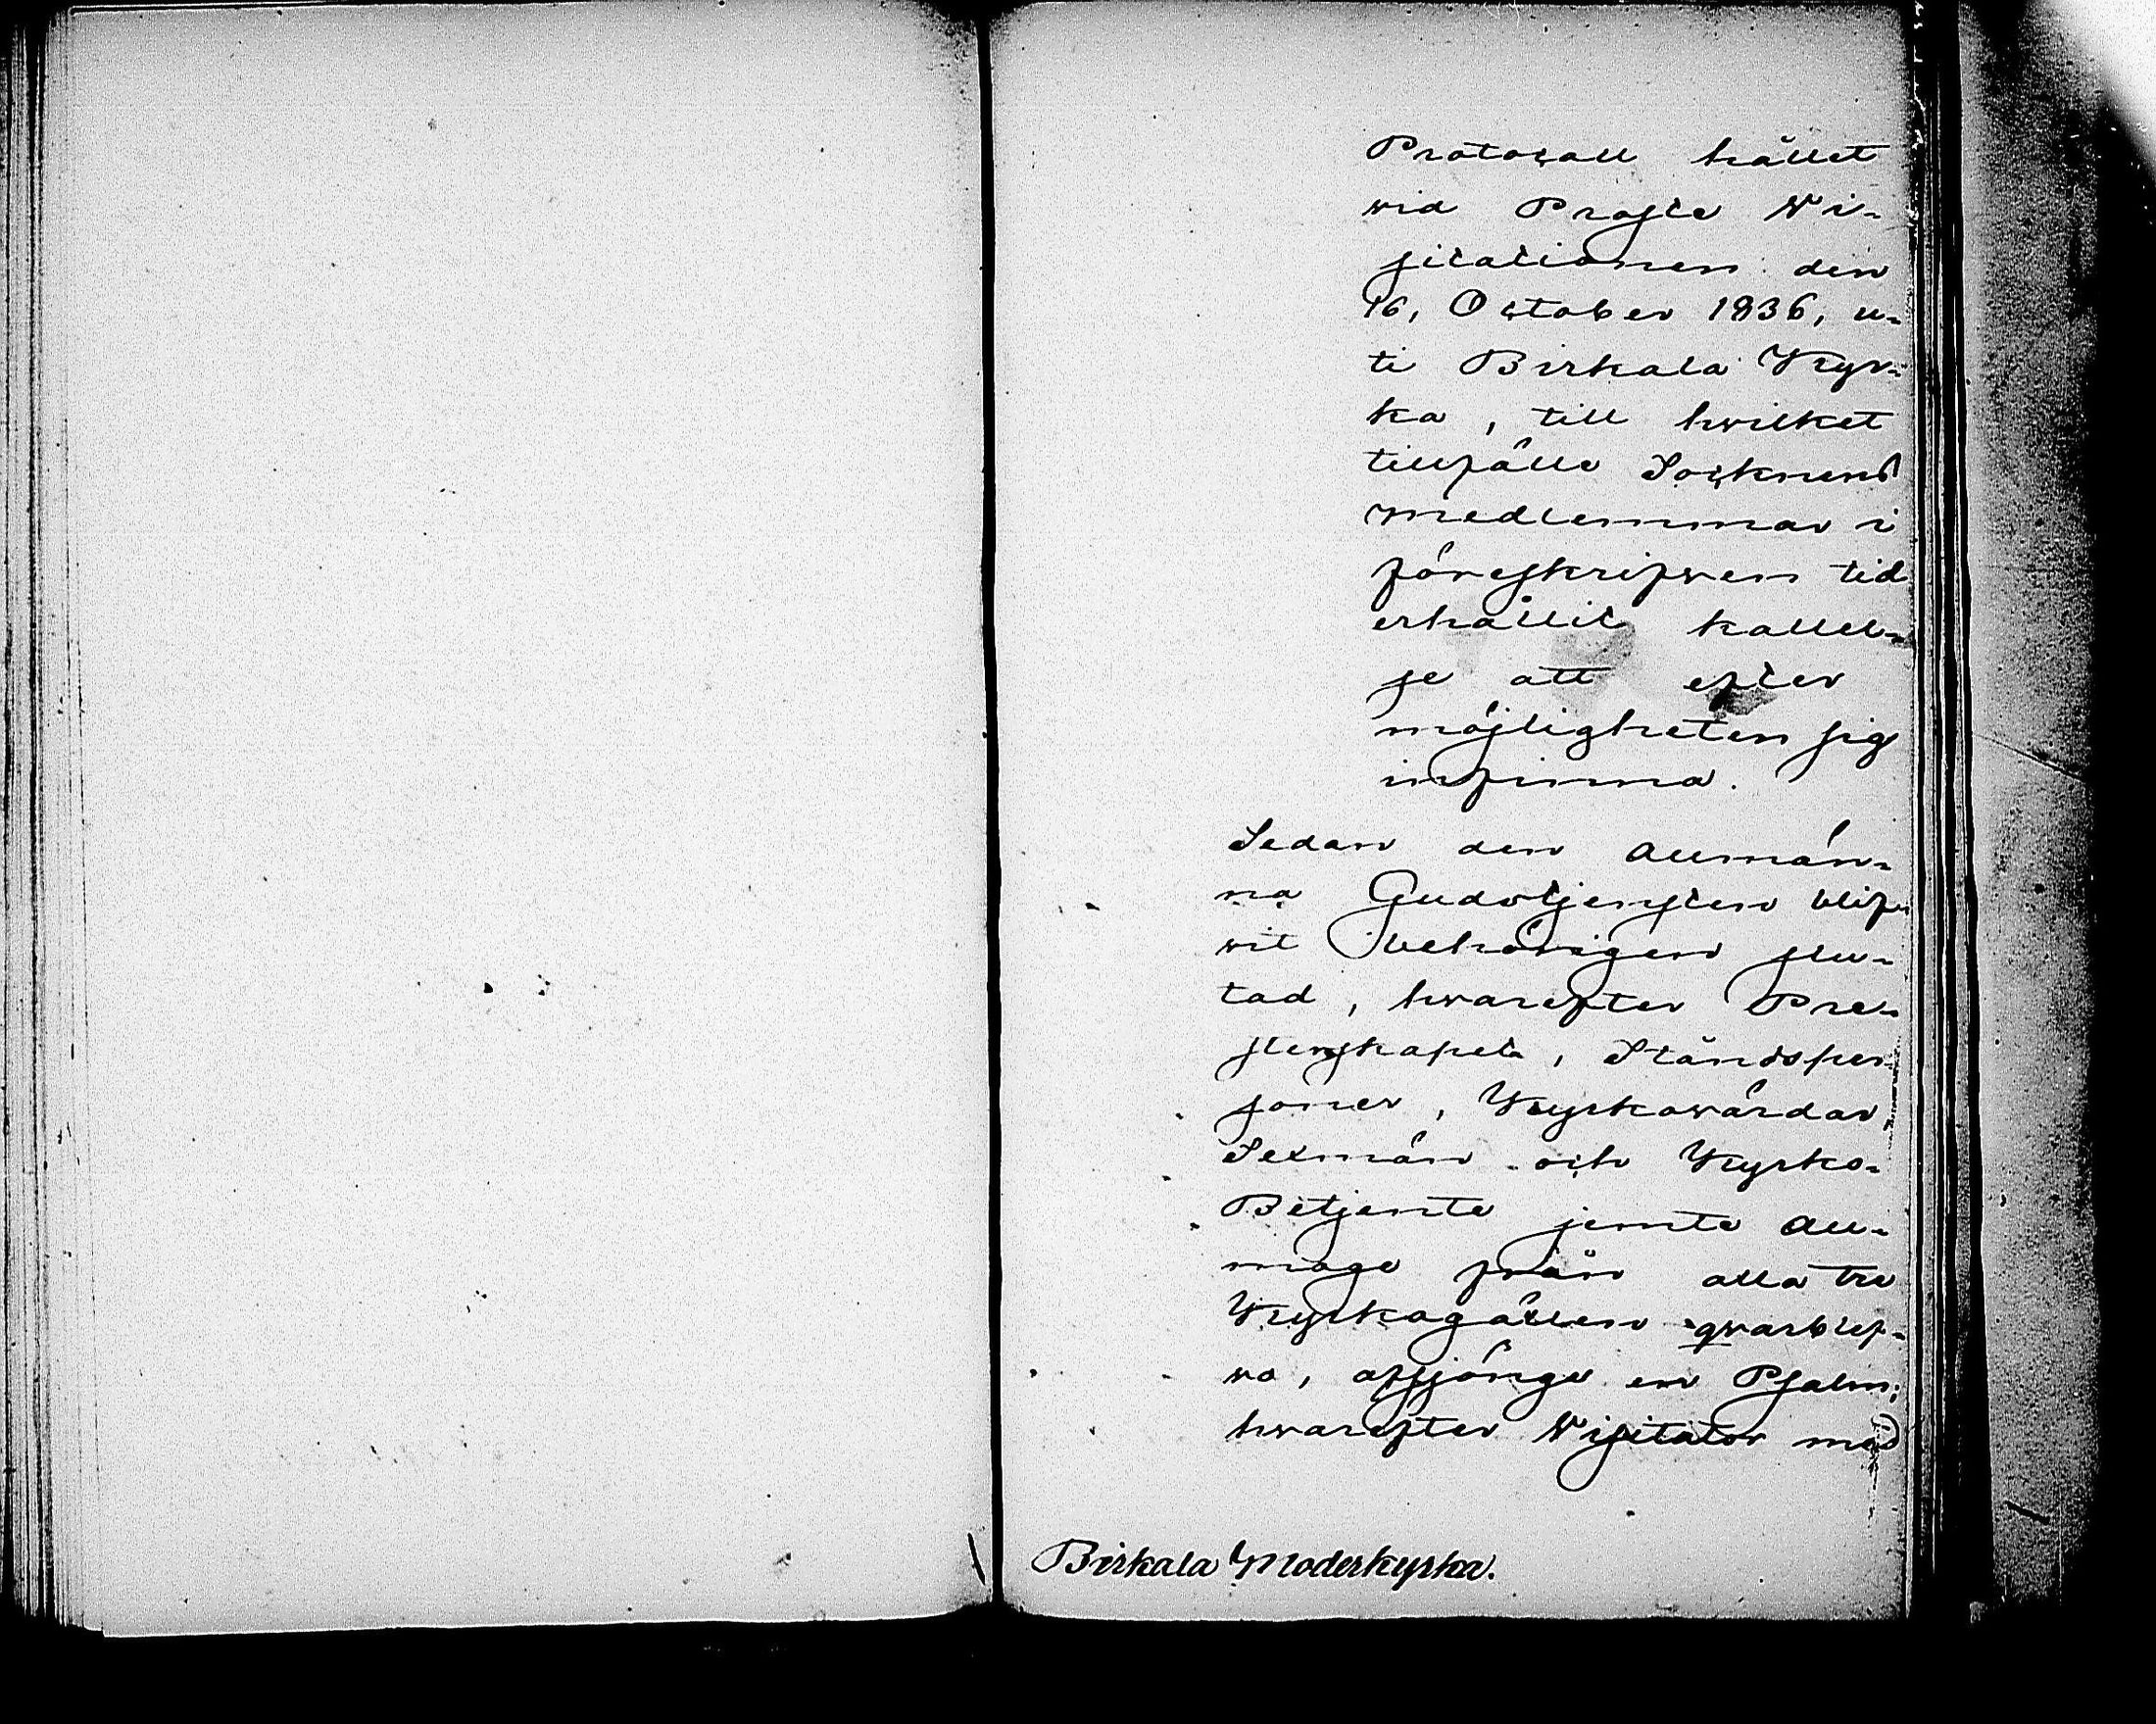 Protocoll hållet
vid Proste Wi-
sitationen den
16, October 1836, u-
ti Birkala Kyr-
ka, till hvilket
tillfälle Socknens
medlemmar i
föreskrifven tid
erhållit kallel-
se att efter
möjligheten sig
infinna.
Sedan den allmän-
na Gudstjensten blif-
vit behörigen slu-
tad, hvarefter Pre-
sterskapet, Ståndsper-
soner, Kyrkovärdar,
Sexmän och Kyrko-
Betjente jemte All-
moge från alla tre
Kyrkogällen qvarblef-
vo, afsjöngs en Psalm;
hvarefter Visitator med
Birkala Moderkyrka.